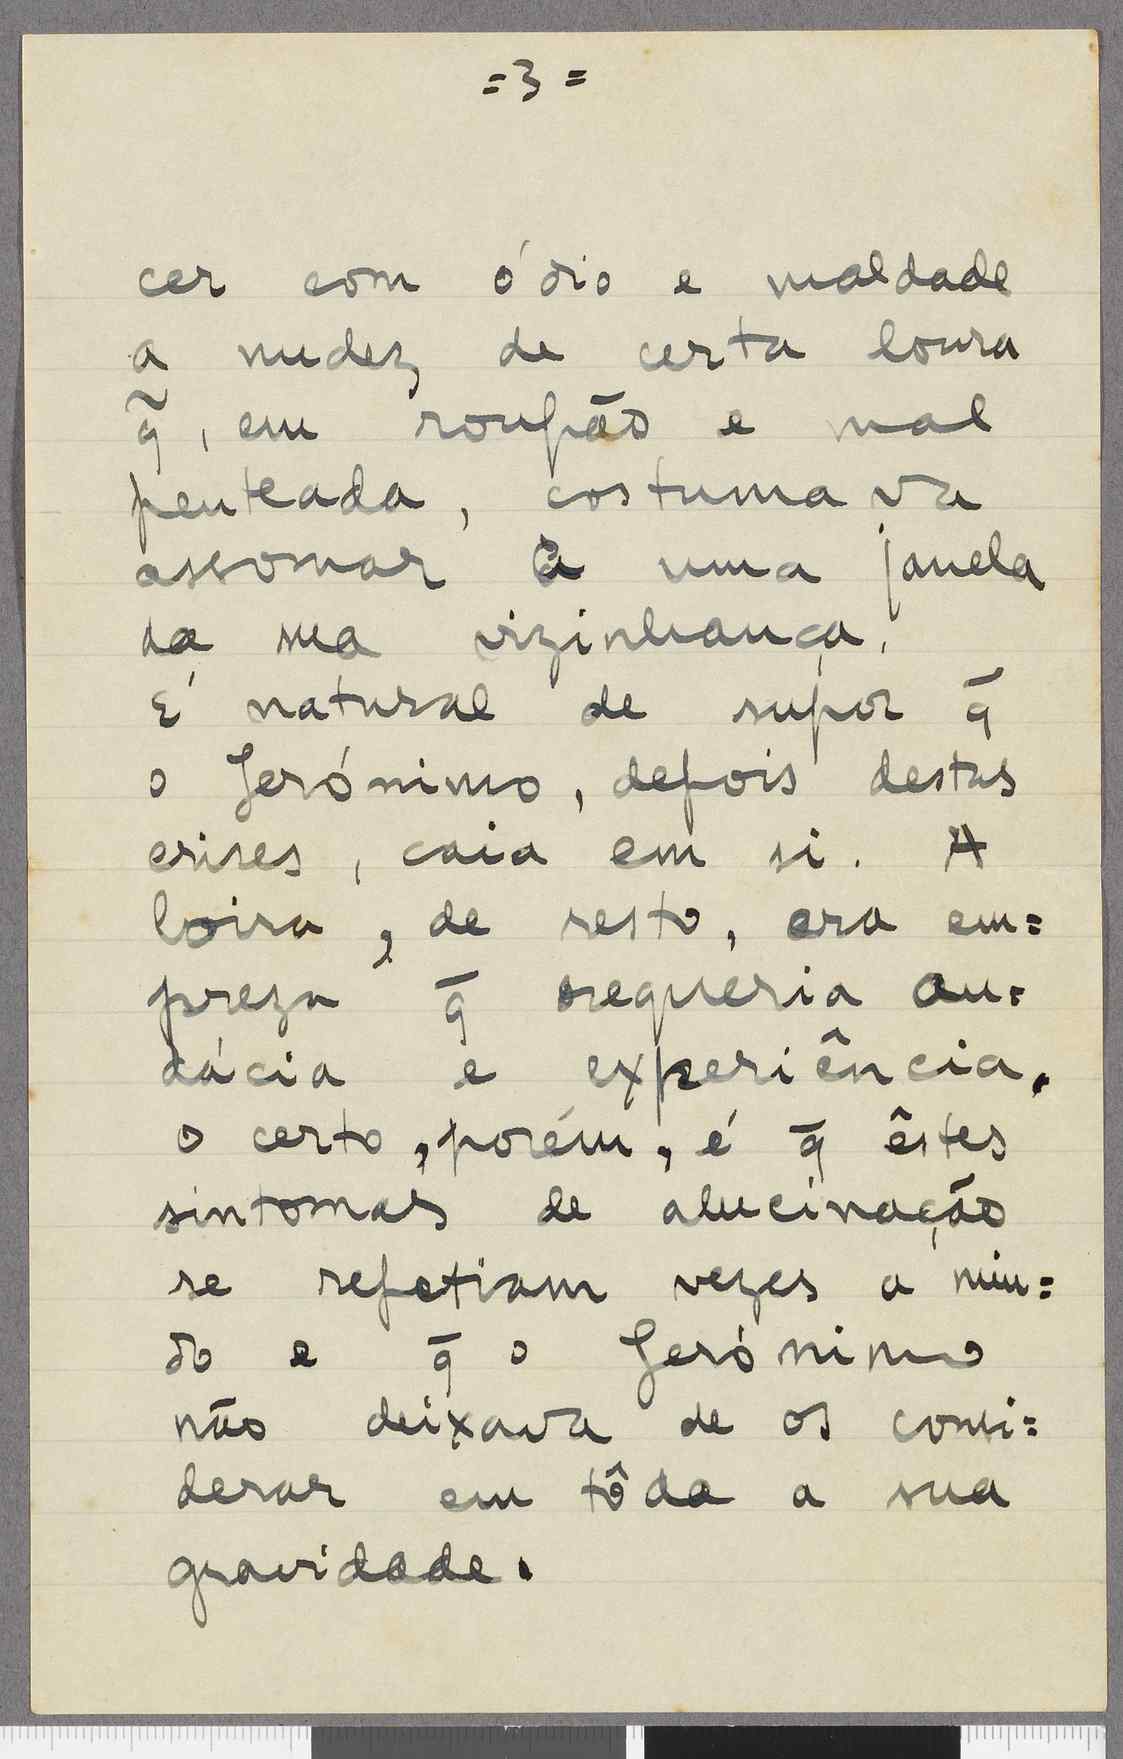 =3=
cer com ódio e maldade
a nudez de certa loura
q̃, em roupão e mal
penteada, costumava
assomar a uma janela
da sua vizinhança.
É natural de supor q̄
o Jerónimo, depois destas
crises, caia em si. A
loira, de resto, era em=
preza q̄ requeria au=
dácia e experiência.
o certo, porém, é q̄ êstes
sintomas de alucinação
se repetiam vezes a miu=
do e q̄ o Jerónimo
não deixava de os consi=
derar em tôda a sua
gravidade.